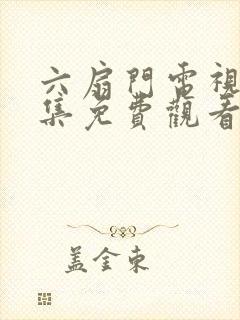 六扇門電視
集免費觀看
蓋金東